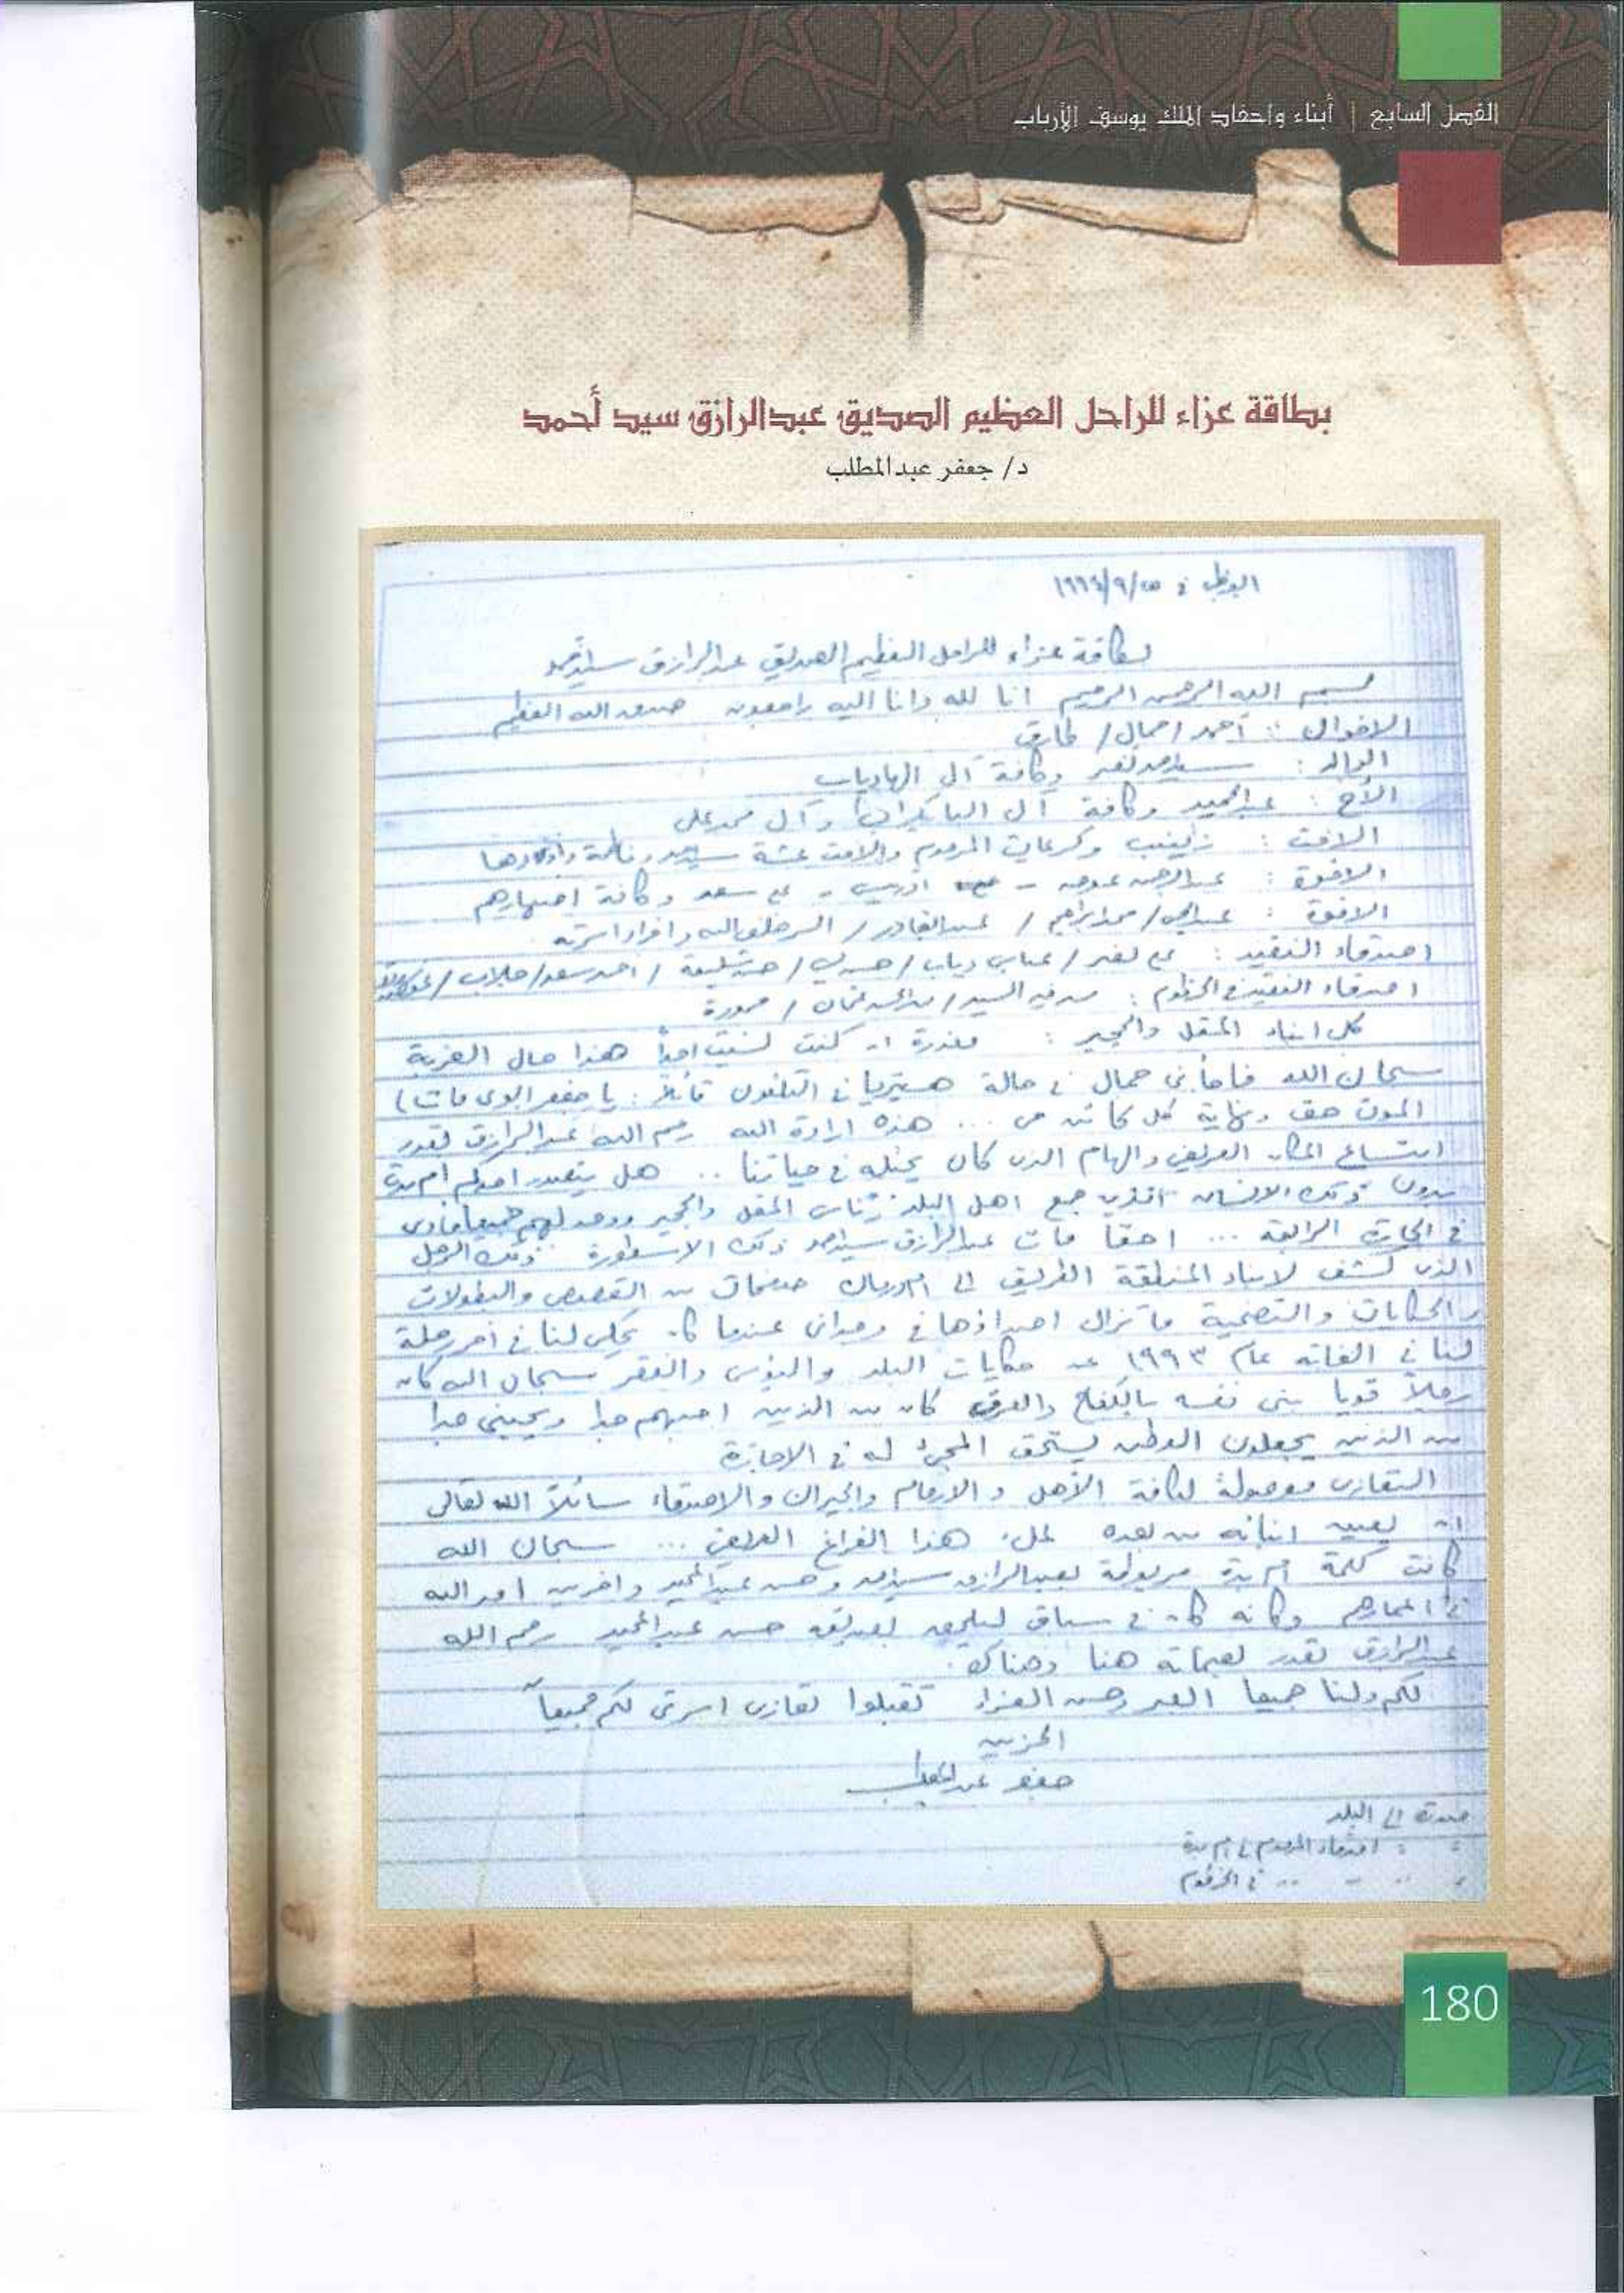 الفصل السابع | أبناء واحفاد الملك يوسف الأرباب
بطاقة عزاء للراحل العظيم الصديق عبدالرازق سيد أحمد
د/ جعفر عبدالمطلب
ابوظبي في ١٩٩٤/٩/
بطاقة عزاء للراحل العظيم الصديق عبدالرازق سيداحمد
بسم الله الرحمن الرحيم انا لله وانا اليه راجعون صدق الله العظيم
أحمد / جمال / طارق
الوالد : سيداحمد نصر وكافة آل
الأخ : عبدالحميد وكافة آل وآل محمدعلي
الاخت : زينب وكريمات المرحوم والاخت عشة سيداحمد وفاطمة واولادها
الاخوة : عبدالرحمن عوض - ادريس - علي سعد وكافة اصهارهم
الاخوة : / محمدابراهيم / عبدالقادر / السر خلف الله وافراد اسرته
اصدقاء الفقيد : علي نصر / عباس دياب / / / احمد سعد / جلاب /
اصدقاء الفقيد في الخرطوم : السيد / عثمان /
كل ابناء المقل والجحير : معذرة ان كنت نسيت احداً هذا حال الغربة
سبحان الله فاجأني جمال في حالة هستيريا في التلفون قائلاً : يا جعفر ابوي مات
الموت حق ونهاية كل كائن حي ... هذه ارادة الله رحم الله عبدالرازق بقدر
اتساع المكان العريض والهام الذي كان يحتله في حياتنا .. هل يتصور احدكم ام بدة
بدون ذلك الانسان الذي جمع اهل البلد ناس المقل والجحير لهم جميعا
في الحارة الرابعة ... احقا مات عبدالرازق سيداحمد ذلك الاسطورة ذلك الرجل
الذي كشف لابناء المنطقة الطريق الى امدرمان صفحات من القصص والبطولات
والحكايات والتضحية ما تزال اصداؤها في وجداني عندما كان يحكي لنا في آخر رحلة
لنا في عام ١٩٩٣ عن حكايات البلد والبؤس والفقر سبحان الله كان
رجلاً قويا بنى نفسه بالكفاح والعرق كان من الذين احبهم جدا ويحبني جدا
من الذين يجعلون الوطن يستحق المجئ له في الاجازة
التعازي موصولة لكافة الأهل والارحام والجيران والاصدقاء سائلاً الله تعالى
ان يعين ابنائه من بعده لملء هذا الفراغ العريض ... سبحان الله
كانت كلمة ام بدة مربوطة بعبدالرازق سيداحمد وحسن عبدالمجيد واخرين امد الله
في اعمارهم وكأنه كان في سباق ليلحق بصديقه حسن عبدالمجيد رحم الله
عبدالرازق بقدر هنا وهناك .
لكم ولنا جميعا الصبر وحسن العزاء تقبلوا تعازي اسرتي لكم جميعاً
الحزين
جعفر عبدالمطلب
صورة الى البلد
: : اصدقاء المرحوم في ام بدة
" " " في الخرطوم
180